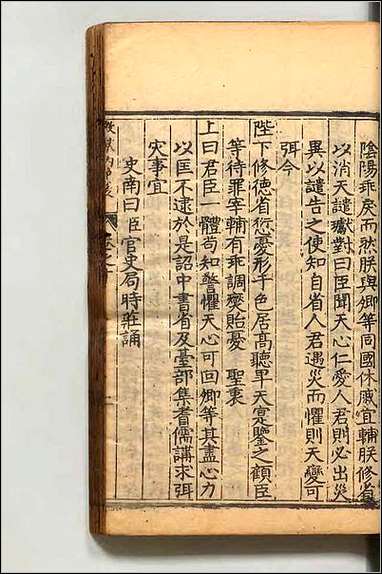 陰陽乖戾而然朕與卿等同國休戚宜輔朕修省
以消天譴瓛對曰臣聞天心仁愛人君則必出災
異以譴告之使知自省人君遇災而懼則天變可
弭今
陛下修德省愆憂形于色居髙聽卑天寔鑒之顧臣
等待罪宰輔有乖調爕貽憂 聖衷
上曰君臣一體苟知警懼天心可回卿等其盡心力
以匡不逮於是詔中書省及臺部集耆儒講求弭
灾事宜
史南曰臣官史局時莊誦